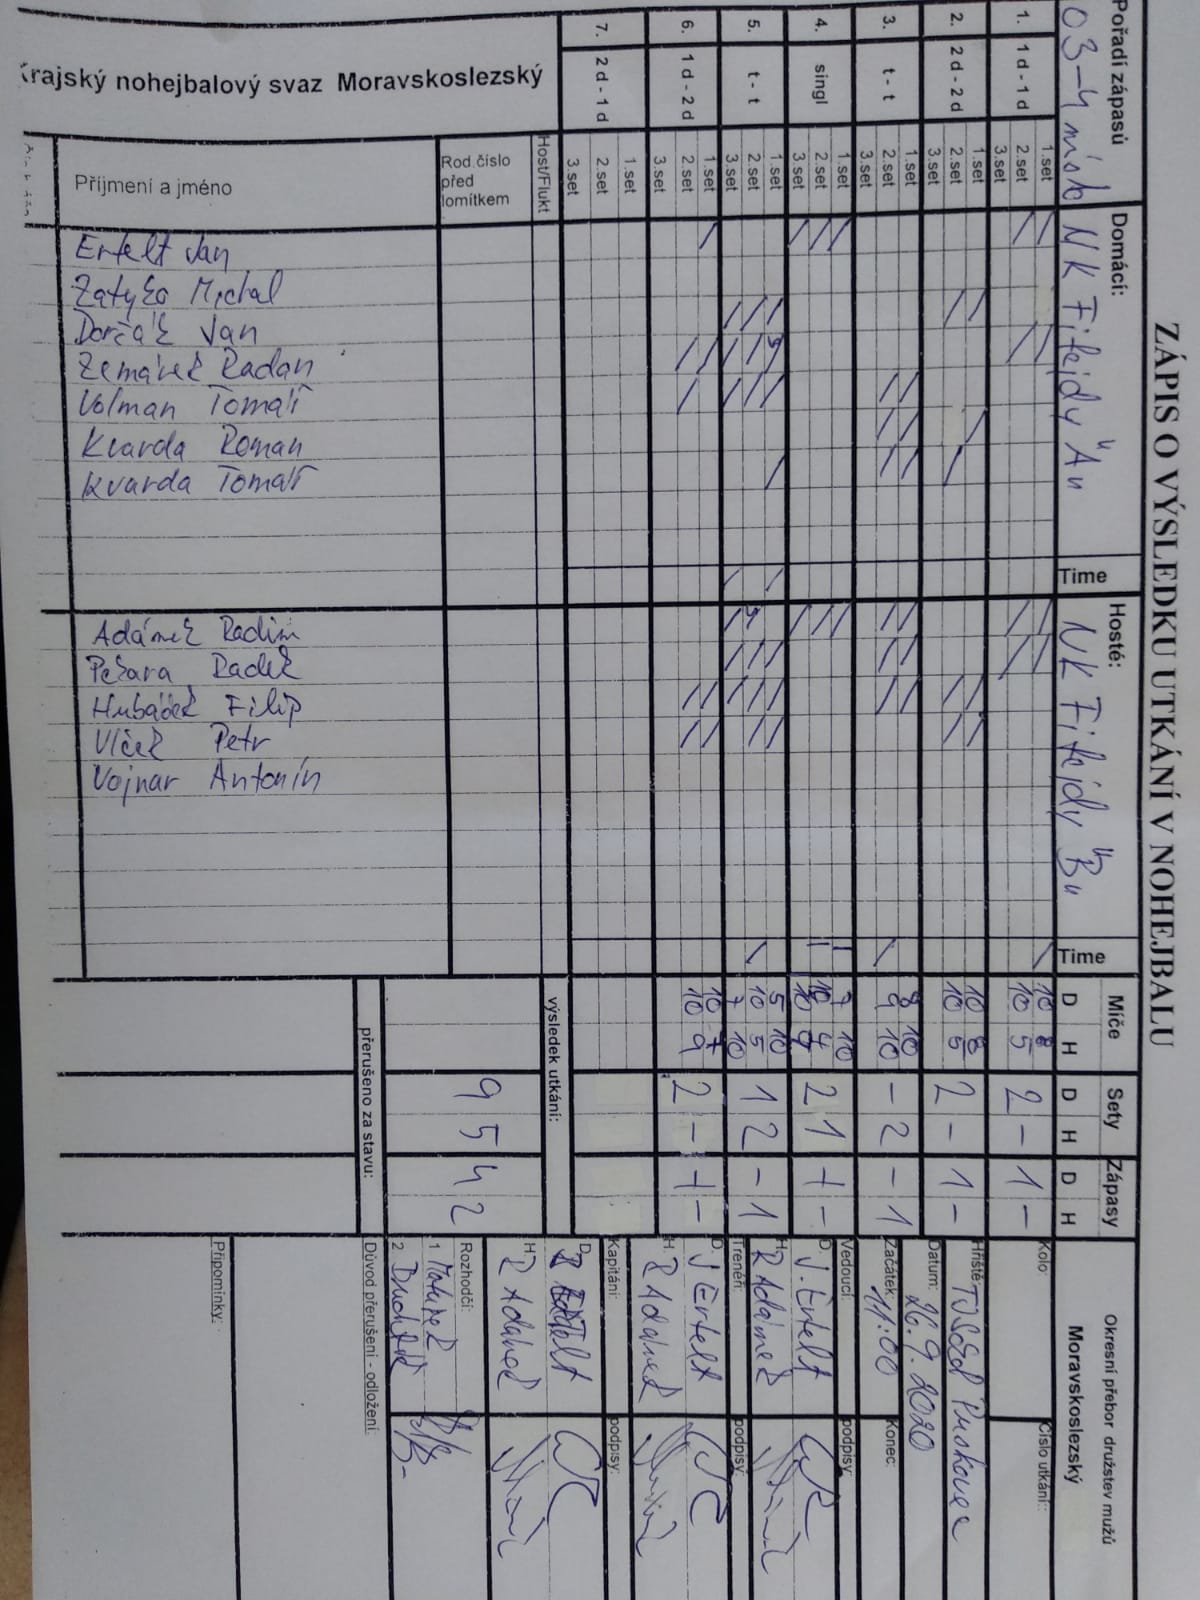 ZÁPIS O VÝSLEDKU UTKÁNÍ V NOHEJBALU
Pořadí zápasů
Domácí:
Time
Hosté:
Time
Míče
Sety
Zápasy
D H D H D H
03-4 místo
NK Fifejdy "A"
NK Fifejdy "B"
Okresní přebor družstev mužů
Moravskoslezský
1. 1 d - 1 d
1.set 10 8
2.set 10 5
3.set
2 - 1 -
2. 2 d - 2 d
1.set 10 8
2.set 10 5
3.set
2 - 1 -
3. t - t
1.set 8 10
2.set 9 10
3.set
- 2 - 1
4. singl
1.set 7 10
2.set 10 4
3.set
2 1 1 -
5. t - t
1.set 5 10
2.set 10 5
3.set 7 10
1 2 - 1
6. 1 d - 2 d
1.set 10 7
2.set 10 9
3.set
2 - 1 -
7. 2 d - 1 d
1.set
2.set
3.set
výsledek utkání:
9 5 4 2
přerušeno za stavu:
Krajský nohejbalový svaz Moravskoslezský
Host/Flukt
Rod.číslo
před
lomítkem
Příjmení a jméno
Ertelt Jan
Michal
Dorčák Jan
Zemánek Radan
Volman Tomáš
Kvarda Roman
Kvarda Tomáš
Adámek Radim
Pekara Radek
Hubáček Filip
Vlček Petr
Vojnar Antonín
Kolo:
Číslo utkání:
Hřiště: TJ Sokol Pustkovec
Datum: 26.9.2020
Začátek: 11:00
Konec:
Vedoucí:
podpisy:
D. J. Ertelt
H. R Adámek
Trenéři:
podpisy:
D. J Ertelt
H. R Adámek
Kapitáni:
podpisy:
D. Ertelt
H. R Adámek
Rozhodčí:
1
2
Důvod přerušení - odložení:
Připomínky: